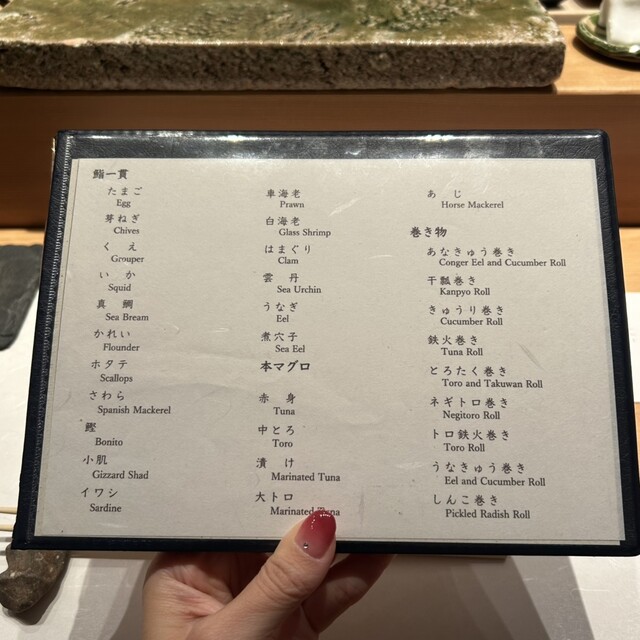 鮨一貫
たまご
Egg
芽ねぎ
Chives
くえ
Grouper
いか
Squid
真鯛
Sea Bream
かれい
Flounder
ホタテ
Scallops
さわら
Spanish Mackerel
鰹
Bonito
小肌
Gizzard Shad
イワシ
Sardine
車海老
Prawn
白海老
Glass Shrimp
はまぐり
Clam
雲丹
Sea Urchin
うなぎ
Eel
煮穴子
Sea Eel
本マグロ
赤身
Tuna
中とろ
Toro
漬け
Marinated Tuna
大トロ
Marinated Tuna
あじ
Horse Mackerel
巻き物
あなきゅう巻き
Conger Eel and Cucumber Roll
干瓢巻き
Kanpyo Roll
きゅうり巻き
Cucumber Roll
鉄火巻き
Tuna Roll
とろたく巻き
Toro and Takuwan Roll
ネギトロ巻き
Negitoro Roll
トロ鉄火巻き
Toro Roll
うなきゅう巻き
Eel and Cucumber Roll
しんこ巻き
Pickled Radish Roll